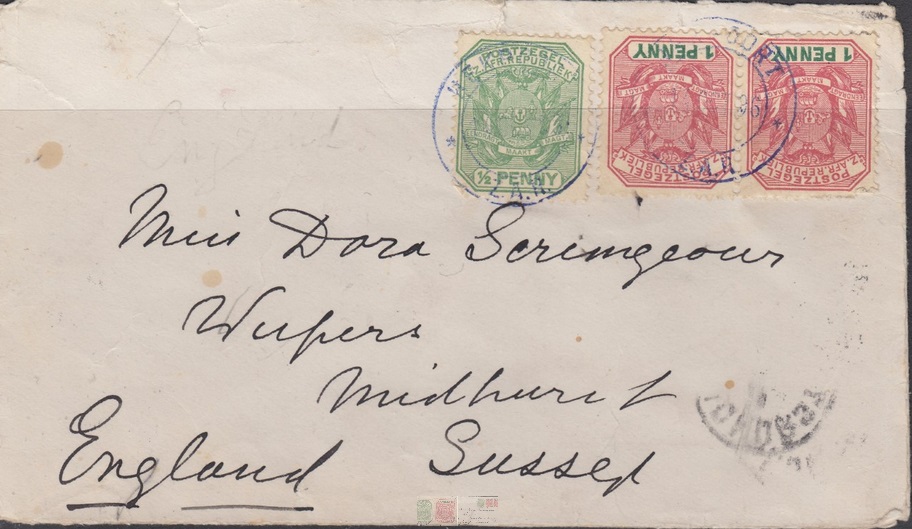 POSTZEGEL
Z. AFR. REPUBLIEK
EENDRAGT MAAKT MAGT
½ PENNY
1 PENNY
EENDRAGT MAAKT MAGT
POSTZEGEL
Z. AFR. REPUBLIEK
1 PENNY
EENDRAGT MAAKT MAGT
POSTZEGEL
Z. AFR. REPUBLIEK
Z.A.R.
Z.A.R.
Miss Dora Scrimgeour
Wispers
Midhurst
Sussex
England